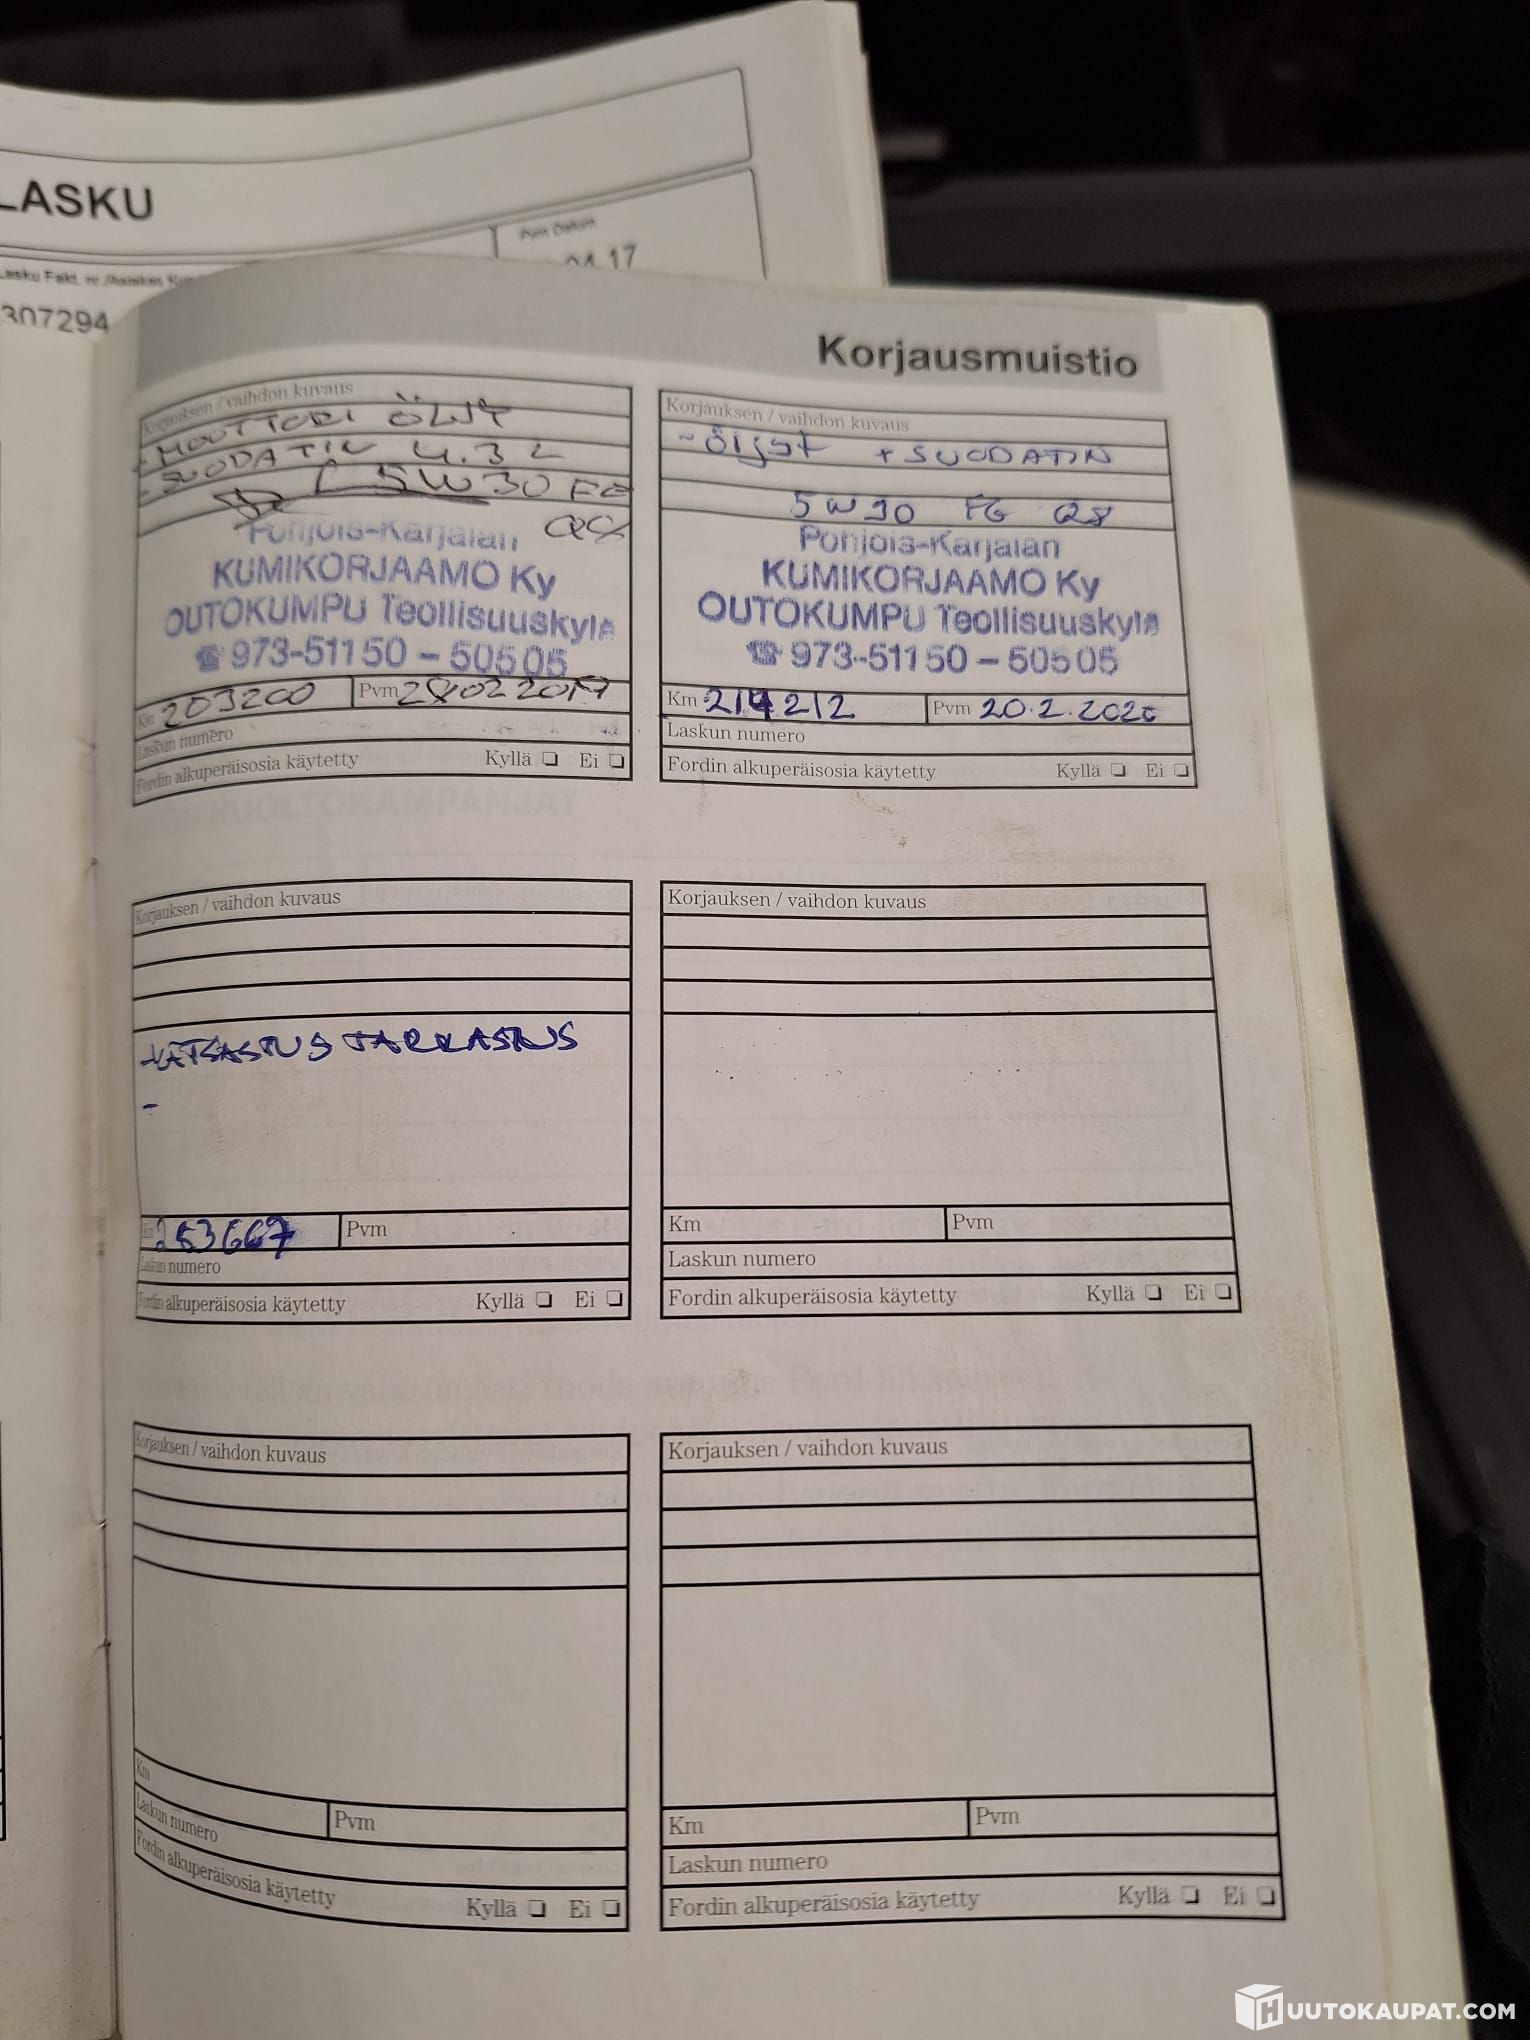 LASKU
Pvm Datum
04.17
Lasku Fakt. nr./Asiakas
307294
Korjausmuistio
Korjauksen / vaihdon kuvaus
-MOOTTORI ÖLJYT
-SUODATIN 4.3 L
5W30 FE
Q8
Pohjois-Karjalan
KUMIKORJAAMO Ky
OUTOKUMPU Teollisuuskylä
☎ 973-511 50 – 505 05
Km 203200 Pvm 28 02 2019
Laskun numero
Fordin alkuperäisosia käytetty Kyllä ❏ Ei ❏
Korjauksen / vaihdon kuvaus
-öljyt + SUODATIN
5W30 FE Q8
Pohjois-Karjalan
KUMIKORJAAMO Ky
OUTOKUMPU Teollisuuskylä
☎ 973-511 50 – 505 05
Km 214212 Pvm 20.2.2020
Laskun numero
Fordin alkuperäisosia käytetty Kyllä ❏ Ei ❏
Korjauksen / vaihdon kuvaus
-KATSASTUS TARKASTUS
-
Km 253667 Pvm
Laskun numero
Fordin alkuperäisosia käytetty Kyllä ❏ Ei ❏
Korjauksen / vaihdon kuvaus
Km Pvm
Laskun numero
Fordin alkuperäisosia käytetty Kyllä ❏ Ei ❏
Korjauksen / vaihdon kuvaus
Km
Pvm
Laskun numero
Fordin alkuperäisosia käytetty Kyllä ❏ Ei ❏
Korjauksen / vaihdon kuvaus
Km Pvm
Laskun numero
Fordin alkuperäisosia käytetty Kyllä ❏ Ei ❏
HUUTOKAUPAT.COM